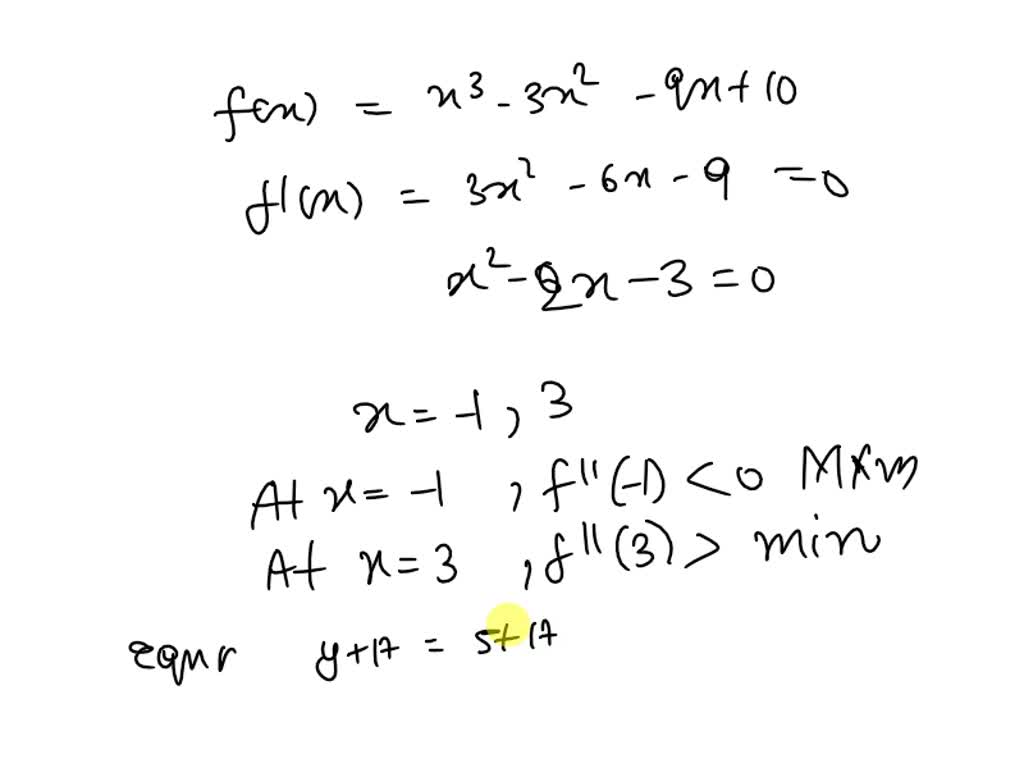 f(x) = x³ - 3x² - 9x + 10
f'(x) = 3x² - 6x - 9 = 0
x² - 2x - 3 = 0
x = -1, 3
At x = -1, f''(-1) < 0 Mxm
At x = 3, f''(3) > min
Eqnr y + 17 = 5 + 17